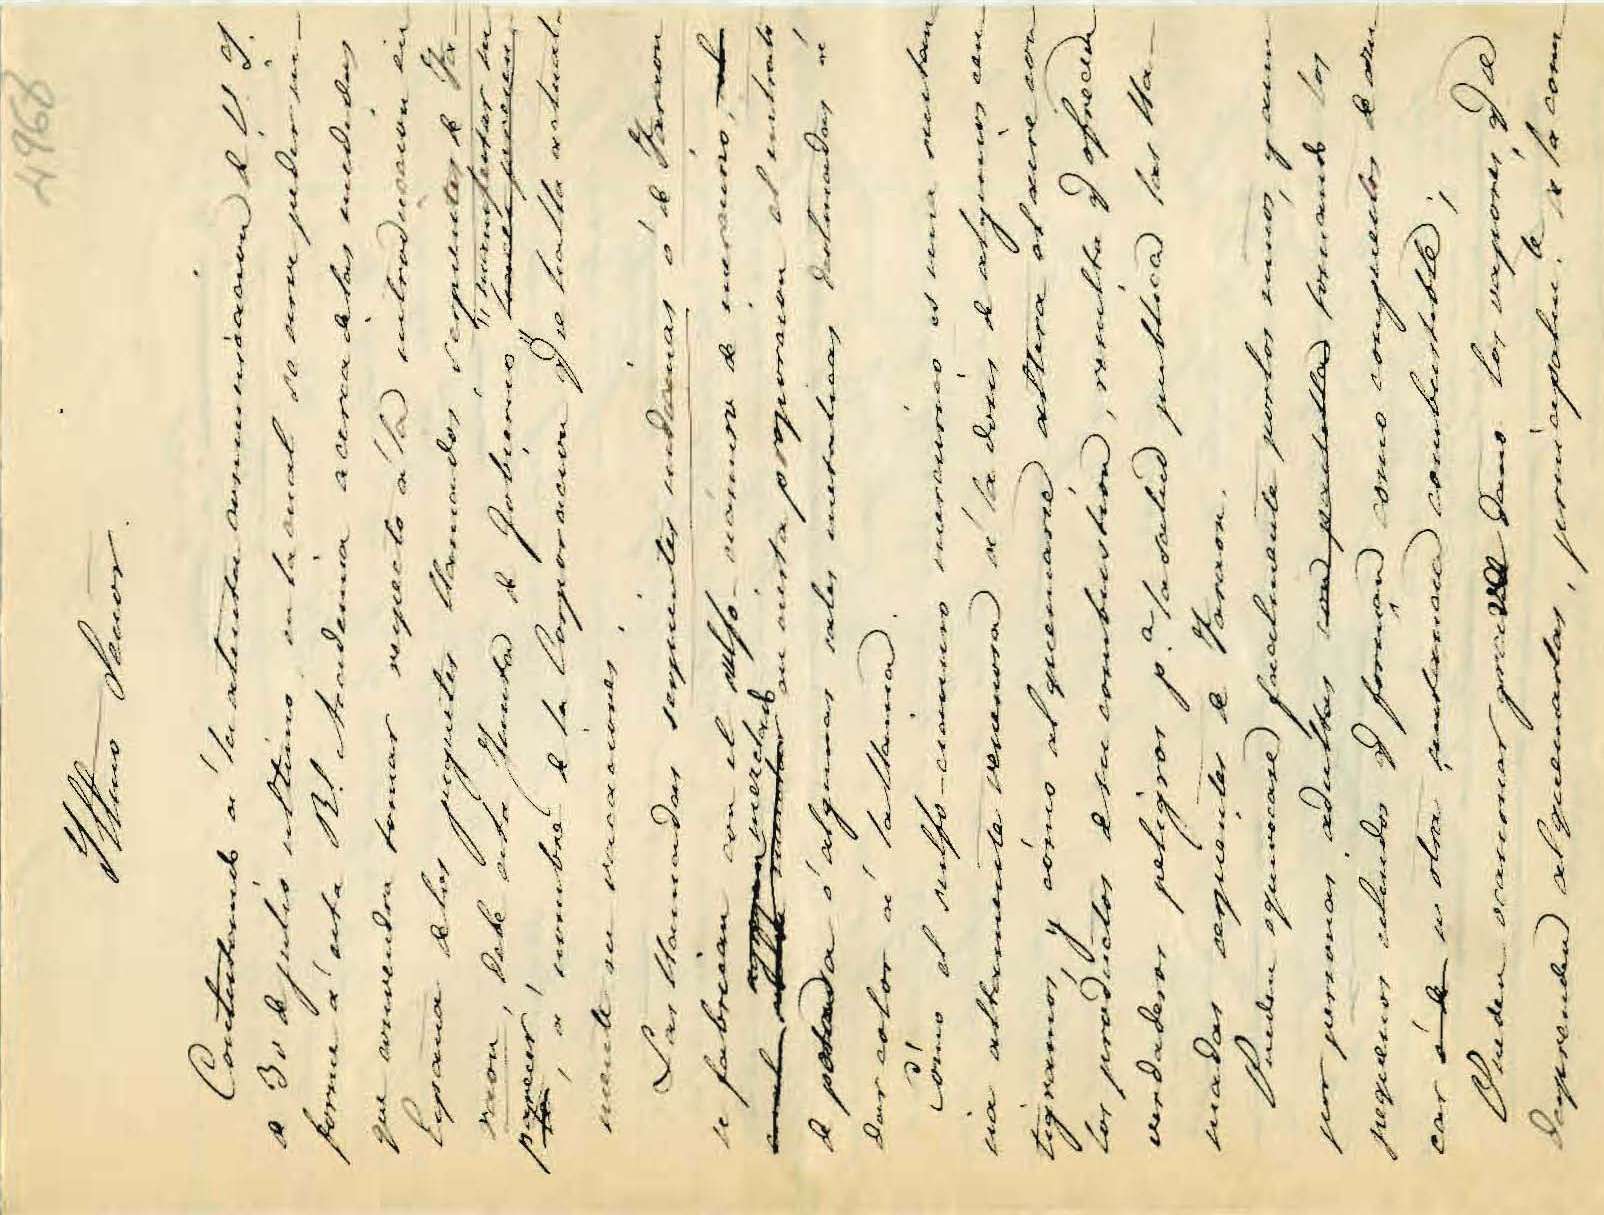 4968
Illmo Señor.
Contestando á la atenta comunicacion de V. Y.
de 30 de julio último, en la cual se sirve pedir in-
forme á esta Rl. Academia acerca de las medidas
que convendra tomar respecto á la introduccion en
España de los juguetes llamados serpientes de Fa-
raon, debe esta Junta de Gobierno "manifestar su
parecer, á nombre de la Corporacion q se halla actual-
mente en vacaciones.
Las llamadas serpientes indianas ó de Faraon
se fabrican con el sulfo-cianuro de mercurio,
mezclado en cierta proporcion el nitrato
de potasa ó algunas sales metálicas destinadas á
dar color á la llama.
Cómo el sulfo-cianuro mercúrico es una sustan
cia altamente venenosa á la dósis de algunos cen
tígramos, y cómo al quemarse altera el aire con
los productos de su combustion, resulta q ofrecen
verdaderos peligros pa. la salud pública las lla-
madas serpientes de Faraon.
Pueden equivocarse facilmente por los niños, y aun
por personas adultas tomando los
pequeños cilindros q forman como compuestos de azu
car ó de otra sustancia combustible.
Pueden ocasionar grave daño los vapores q se
desprenden al quemarlas, principalmte. si la com